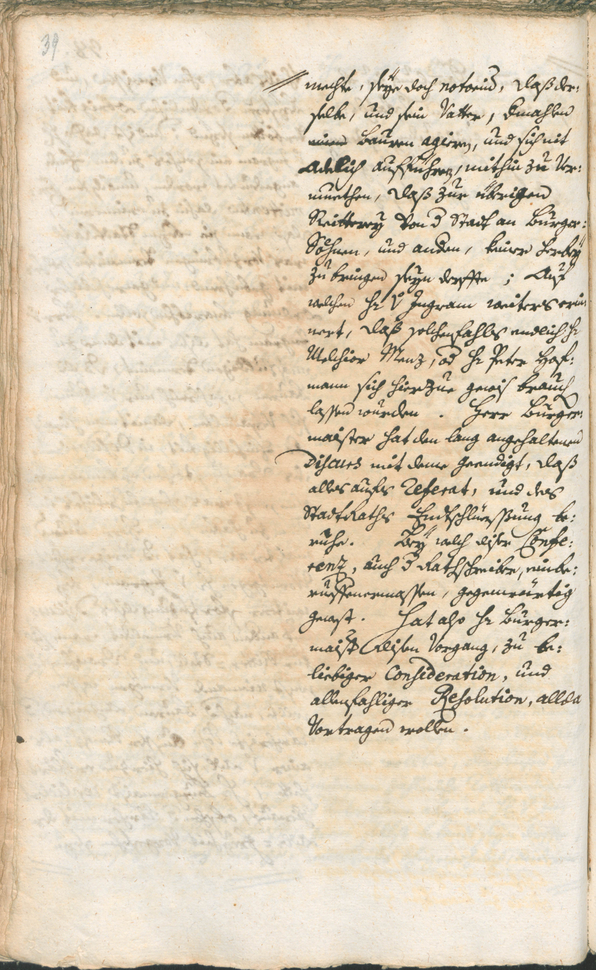 39
mechte, seye doch notorius, daß der-
selbe, und sein Vatter, domahlen
Bauren agieren, und sich nit
Adelich aufführen, mithin zu Ver-
muethen, daß zur übrigen
Reitterey von d Statt an Burger-
Söhnen, und anden, keiner herbey
zu bringen seyn derffte ; Auf
welchen Hr v Ingram weiters erin-
nert, daß solchenfahls endlich Hr
Melchior Menz, od Hr Peter Hof-
mann sich hierzue gewis brauch
lassen wurden . Herr Burger-
maister hat den lang angehaltenen
Discurs mit deme geendigt, daß
alles aufs Referat, und des
StadtRaths Entschlüessung be-
ruhe. Bey welch diser Confe-
renz, auch d Rathschreiber, einbe-
rueffenermassen, gegenwürtig
gewest. Hat also Hr Burger-
maistr disen Vorgang, zu be-
liebiger Consideration, und
allenfahliger Resolution, allda
Vortragen wollen.